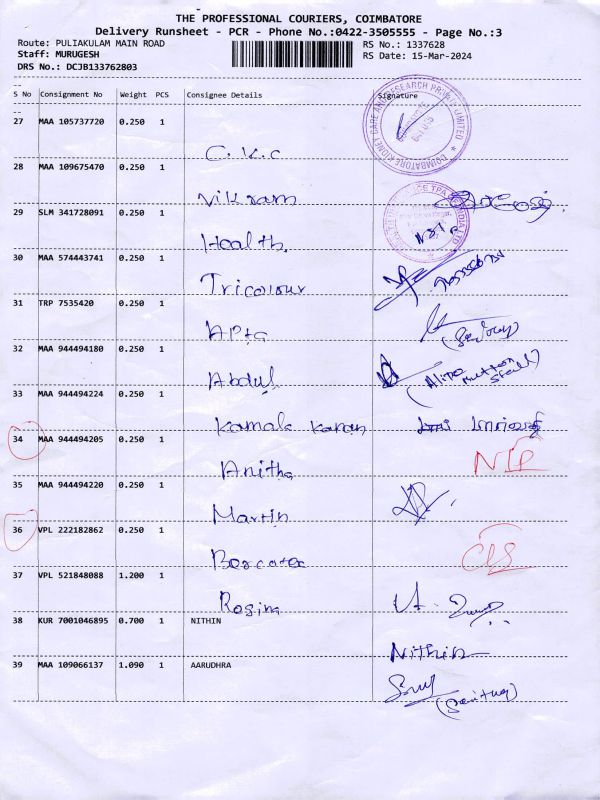 THE PROFESSIONAL COURIERS, COIMBATORE
Delivery Runsheet - PCR - Phone No.:0422-3505555 - Page No.:3
Route: PULIAKULAM MAIN ROAD
RS No.: 1337628
Staff: MURUGESH
RS Date: 15-Mar-2024
DRS No.: DCJB133762803
S No Consignment No Weight PCS Consignee Details Signature
27 MAA 105737720 0.250 1
C.K.C
COIMBATORE KIDNEY CARE AND RESEARCH PRIVATE LIMITED
28 MAA 109675470 0.250 1
Vikram
29 SLM 341728091 0.250 1
Health.
30 MAA 574443741 0.250 1
Tricolour
31 TRP 7535420 0.250 1
Apta
32 MAA 944494180 0.250 1
Abdul
(Alipa Mutton Stall)
33 MAA 944494224 0.250 1
Kamala Kanan
34 MAA 944494205 0.250 1
Anitha
35 MAA 944494220 0.250 1
Martin
36 VPL 222182862 0.250 1
37 VPL 521848088 1.200 1
Rogina
38 KUR 7001046895 0.700 1 NITHIN
Nithin
39 MAA 109066137 1.090 1 AARUDHRA